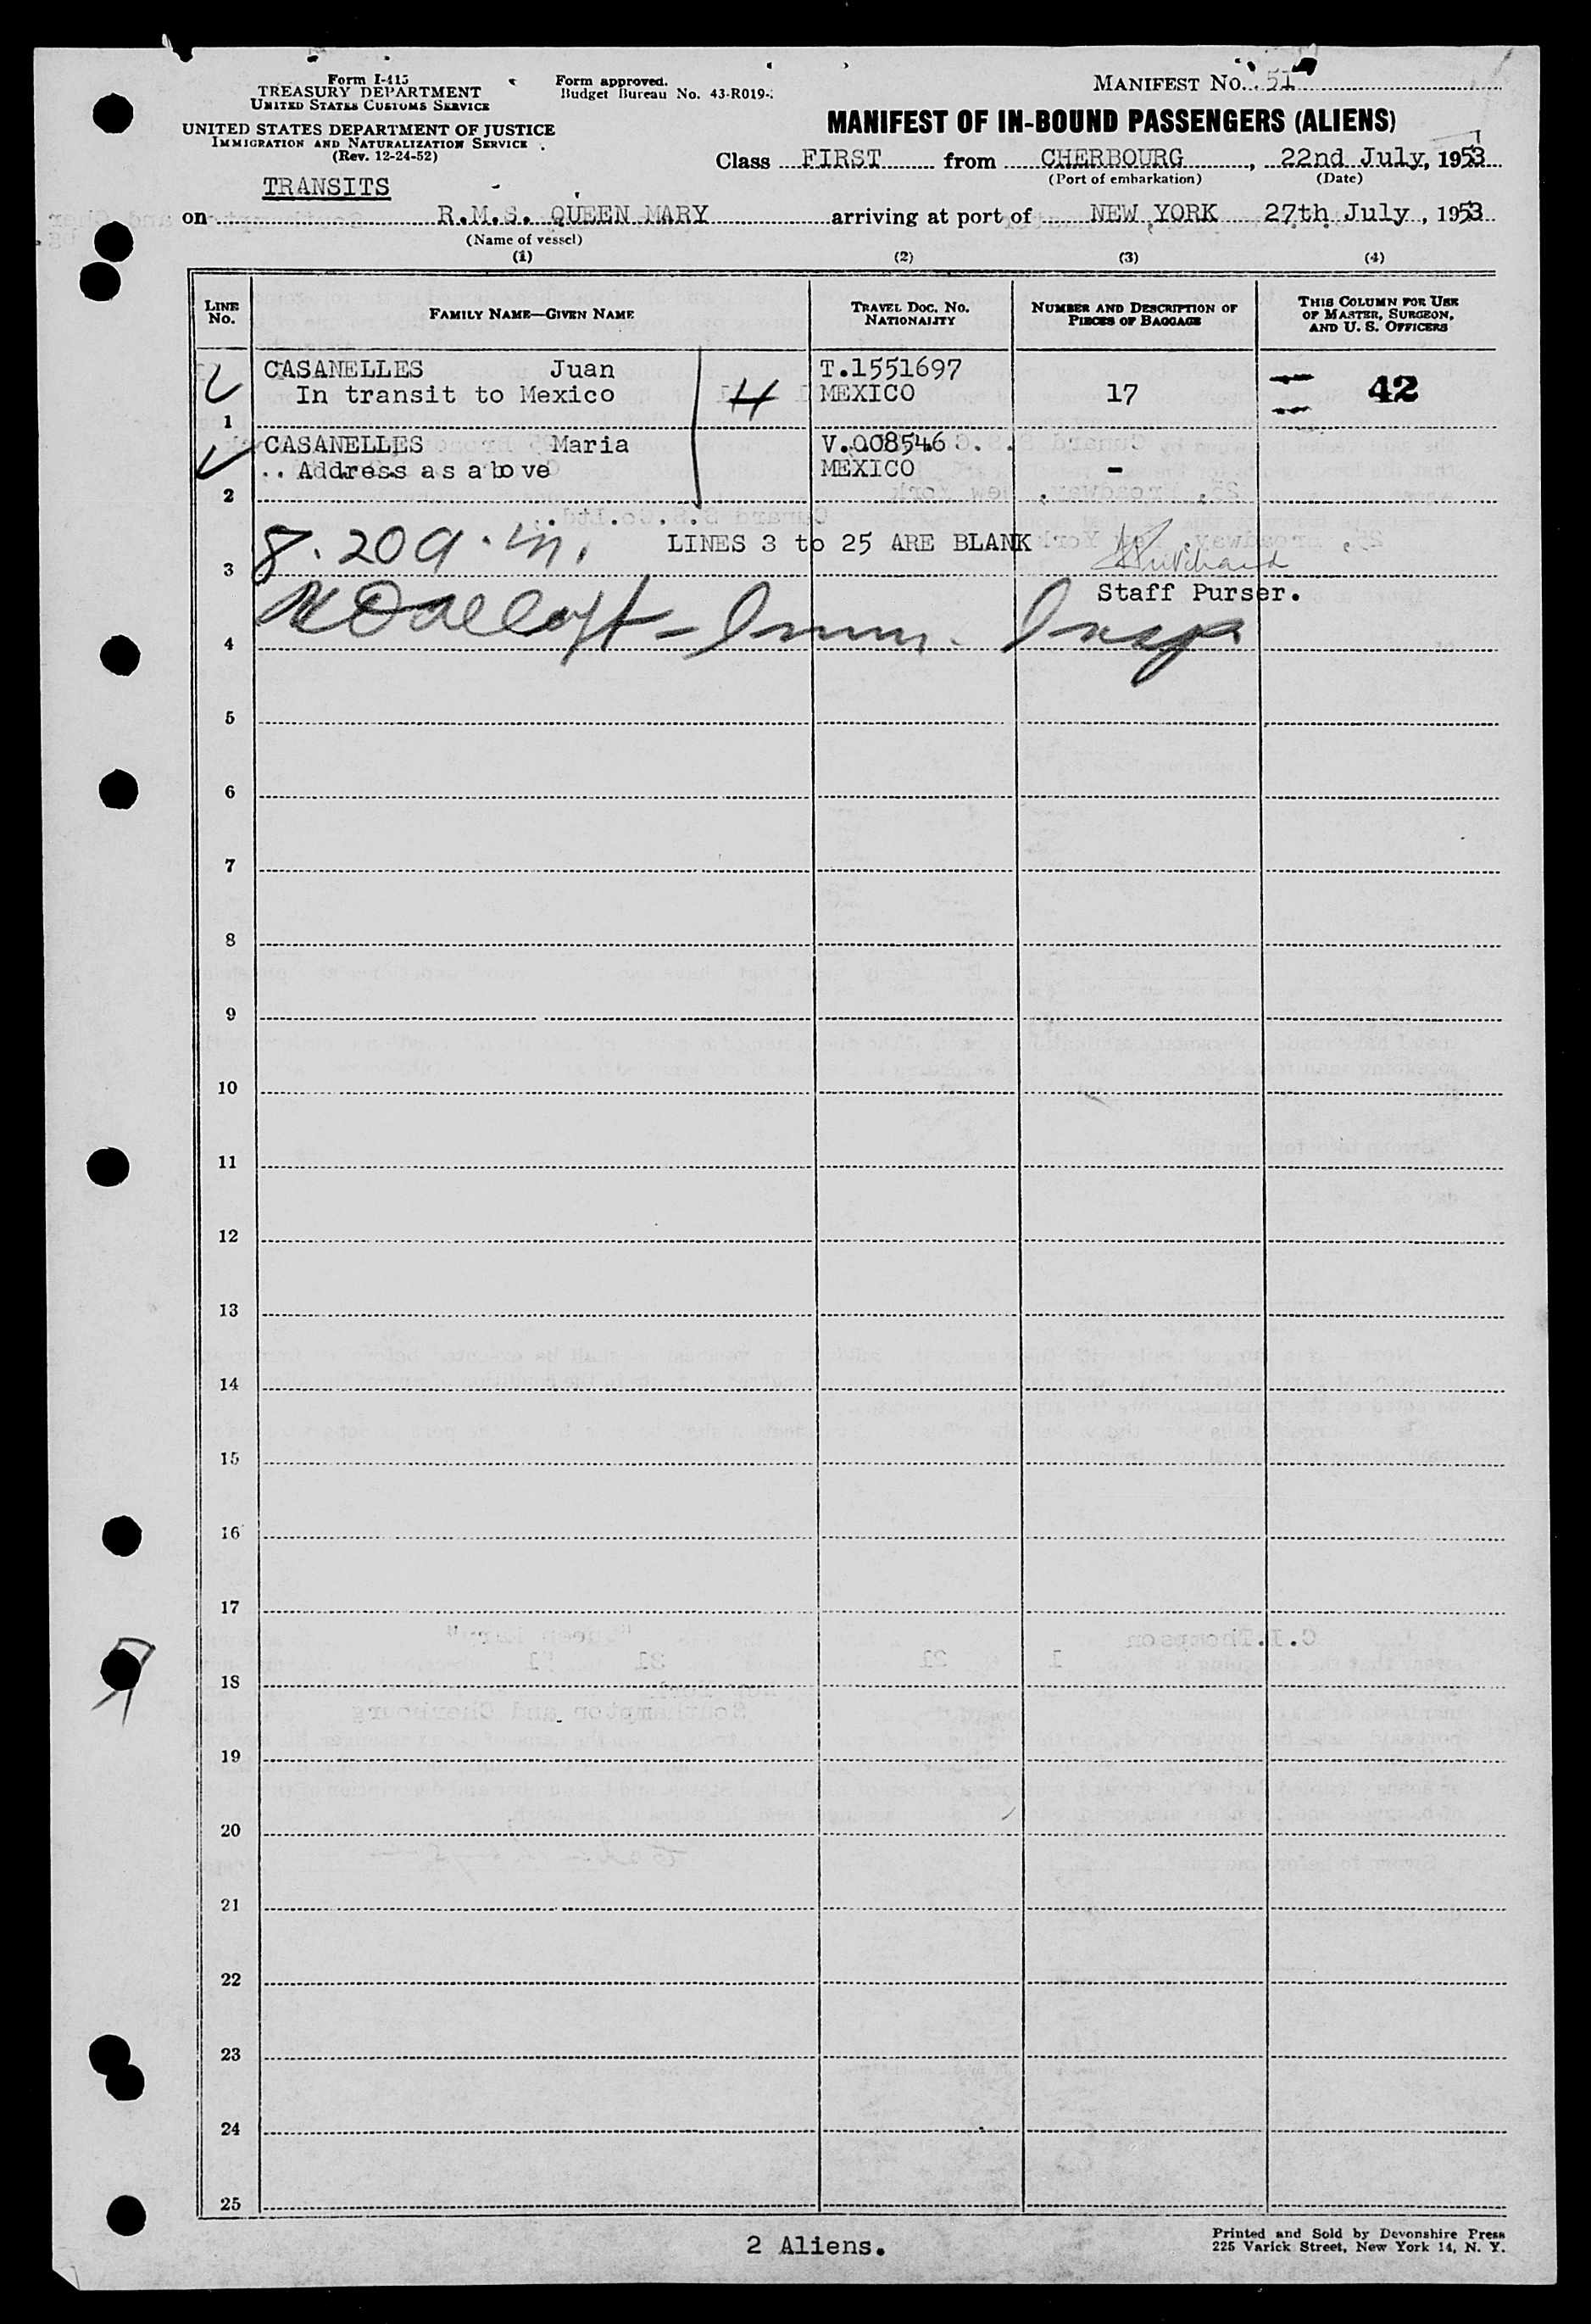 Form I-415
TREASURY DEPARTMENT
UNITED STATES CUSTOMS SERVICE
UNITED STATES DEPARTMENT OF JUSTICE
IMMIGRATION AND NATURALIZATION SERVICE
(Rev. 12-24-52)
Form approved.
Budget Bureau No. 43-R019-
MANIFEST No. 51
MANIFEST OF IN-BOUND PASSENGERS (ALIENS)
Class FIRST from CHERBOURG, 22nd July, 1953
(Port of embarkation) (Date)
TRANSITS
on R.M.S. QUEEN MARY arriving at port of NEW YORK 27th July, 1953
(Name of vessel)
(1) (2) (3) (4)
LINE No. FAMILY NAME—GIVEN NAME TRAVEL DOC. NO. NATIONALITY NUMBER AND DESCRIPTION OF PIECES OF BAGGAGE THIS COLUMN FOR USE OF MASTER, SURGEON, AND U. S. OFFICERS
CASANELLES Juan T.1551697
In transit to Mexico 4 MEXICO 17 42
1
CASANELLES Maria V.008546
.. Address as above MEXICO -
2
8.20 a.m. LINES 3 to 25 ARE BLANK
3
Staff Purser.
Imm. Insp
4
5
6
7
8
9
10
11
12
13
14
15
16
17
18
19
20
21
22
23
24
25
2 Aliens.
Printed and Sold by Devonshire Press
225 Varick Street, New York 14, N. Y.